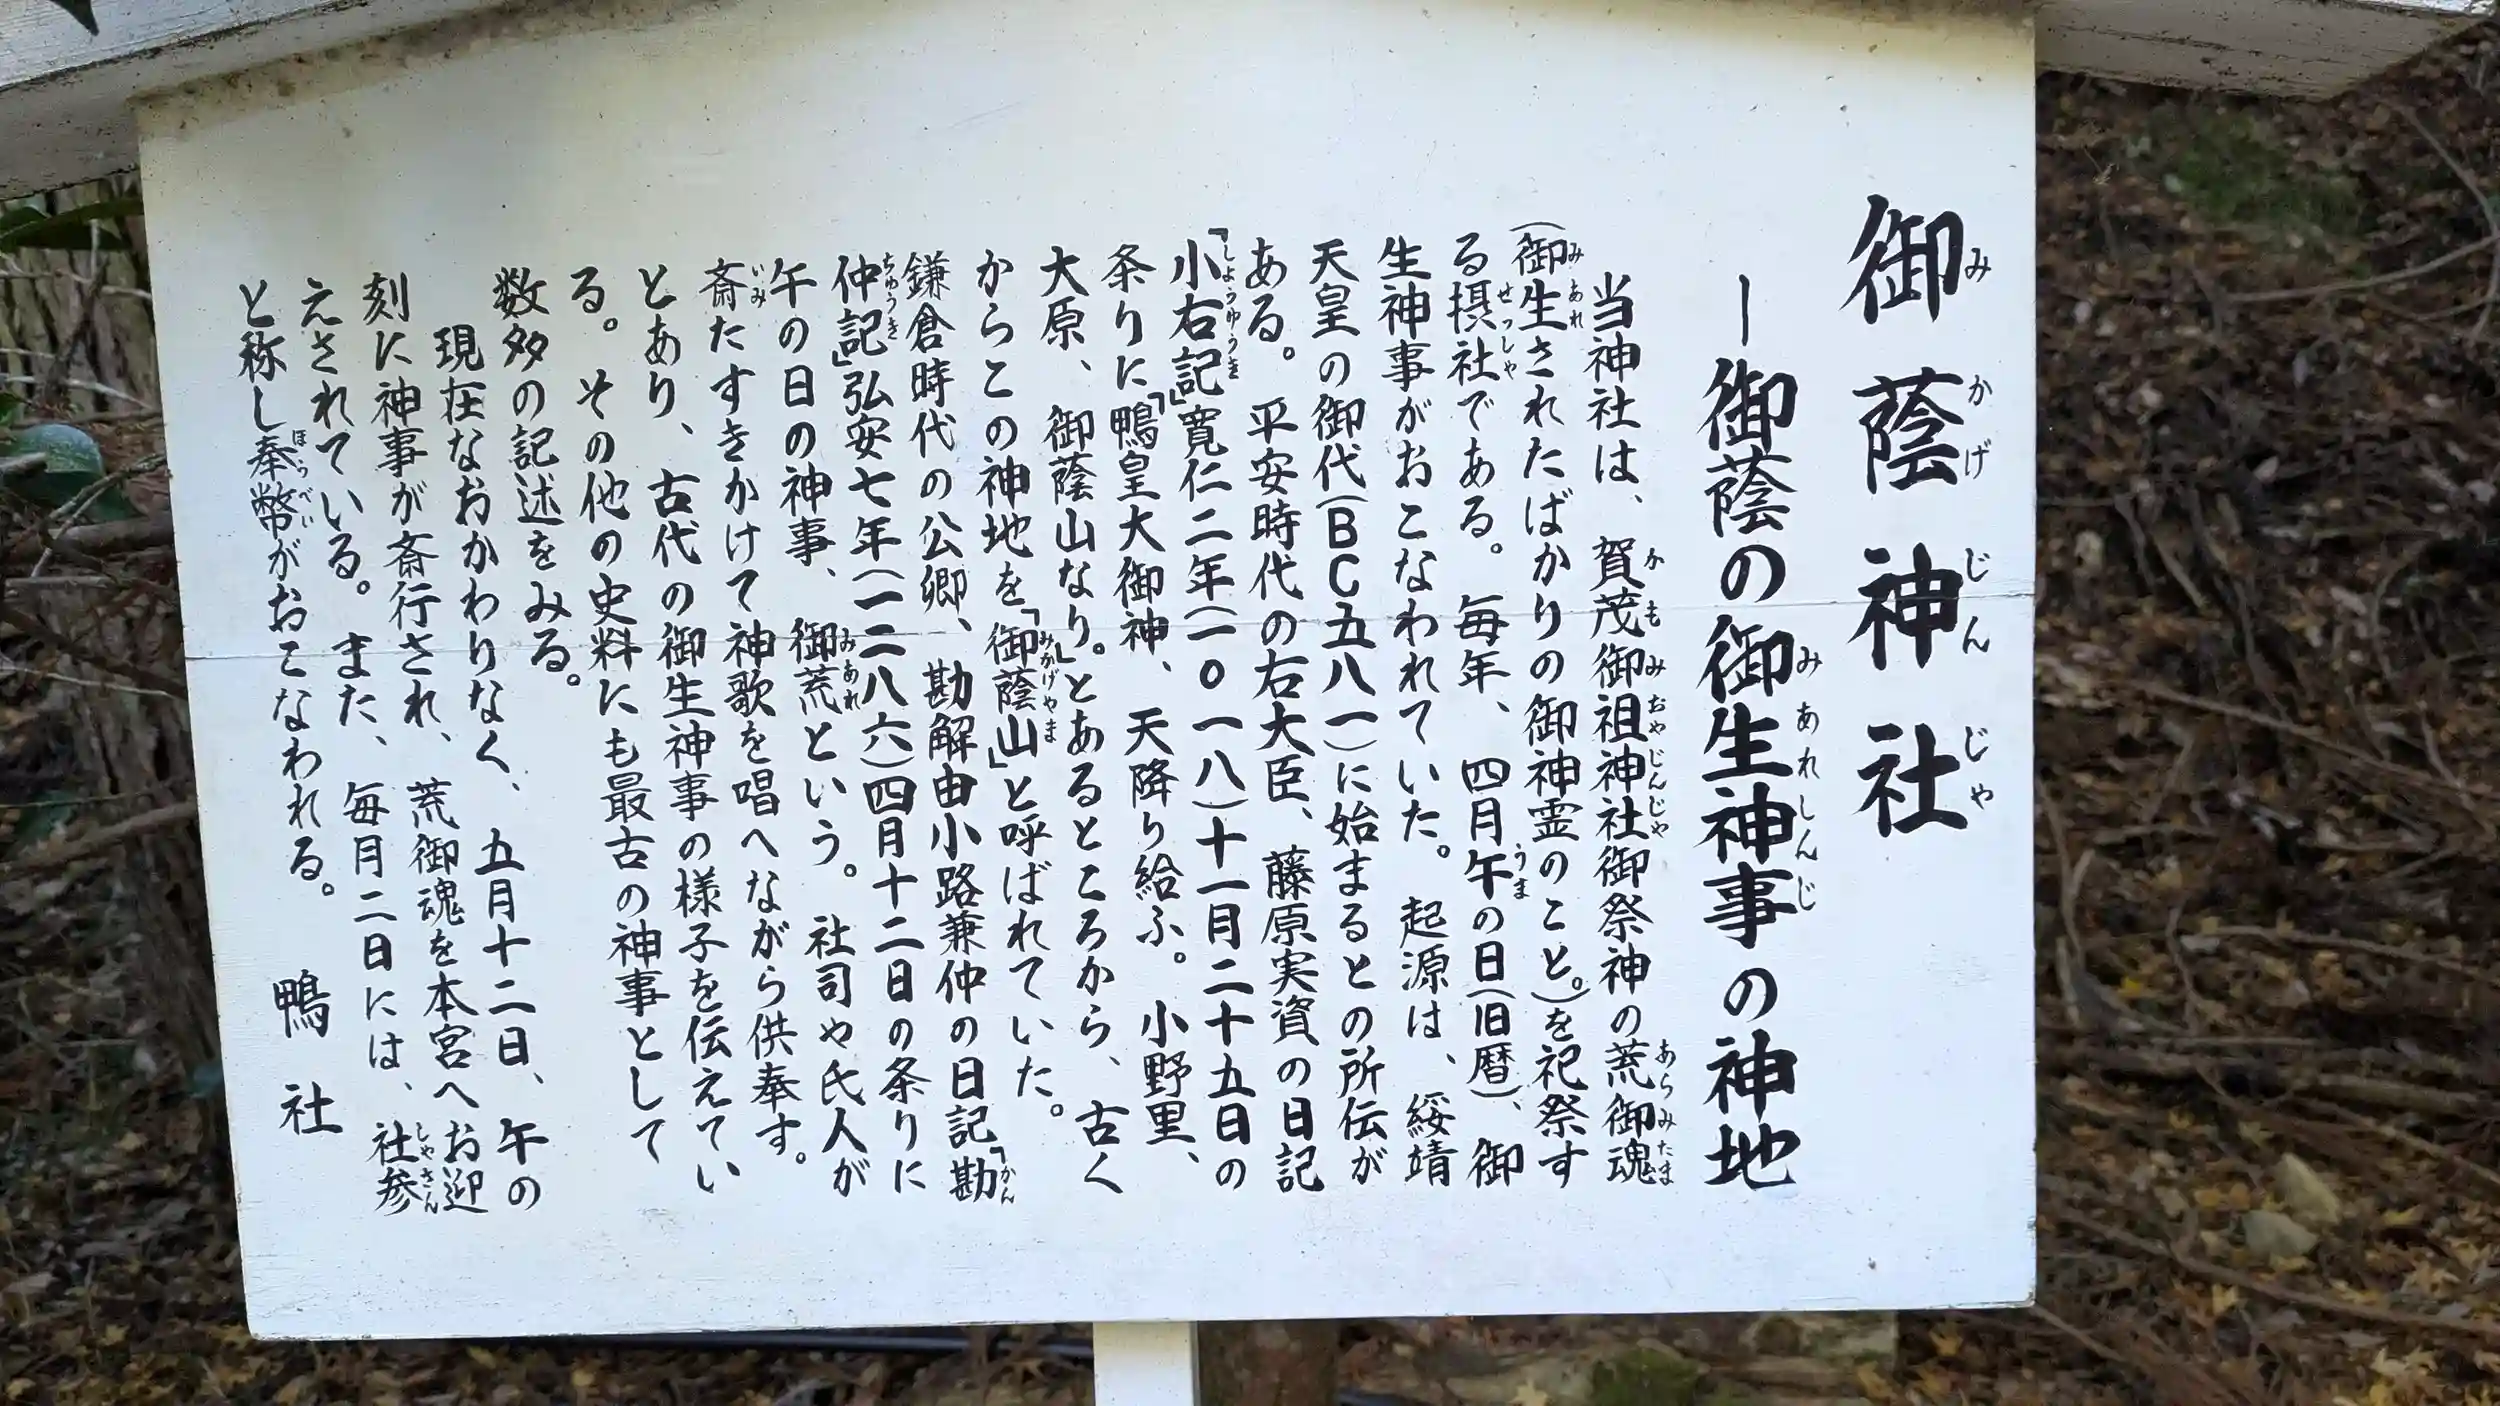 御蔭神社
ー御蔭の御生神事の神地
当神社は、賀茂御祖神社御祭神の荒御魂
(御生されたばかりの御神霊のこと。)を祀祭す
る摂社である。毎年、四月午の日(旧暦)、御
生神事がおこなわれていた。起源は、綏靖
天皇の御代(BC五八一)に始まるとの所伝が
ある。平安時代の右大臣、藤原実資の日記
「小右記」寛仁二年(一〇一八)十一月二十五日の
条りに「鴨皇大御神、天降り給ふ。小野里、
大原、御蔭山なり。」とあるところから、古く
からこの神地を「御蔭山」と呼ばれていた。
鎌倉時代の公卿、勘解由小路兼仲の日記「勘
仲記」弘安七年(一二八六)四月十二日の条りに
午の日の神事、御荒という。社司や氏人が
斎たすきかけて神歌を唱へながら供奉す。
とあり、古代の御生神事の様子を伝えてい
る。その他の史料にも最古の神事として
数多の記述をみる。
現在なおかわりなく、五月十二日、午の
刻に神事が斎行され、荒御魂を本宮へお迎
えされている。また、毎月二日には、社参
と称し奉幣がおこなわれる。
鴨社